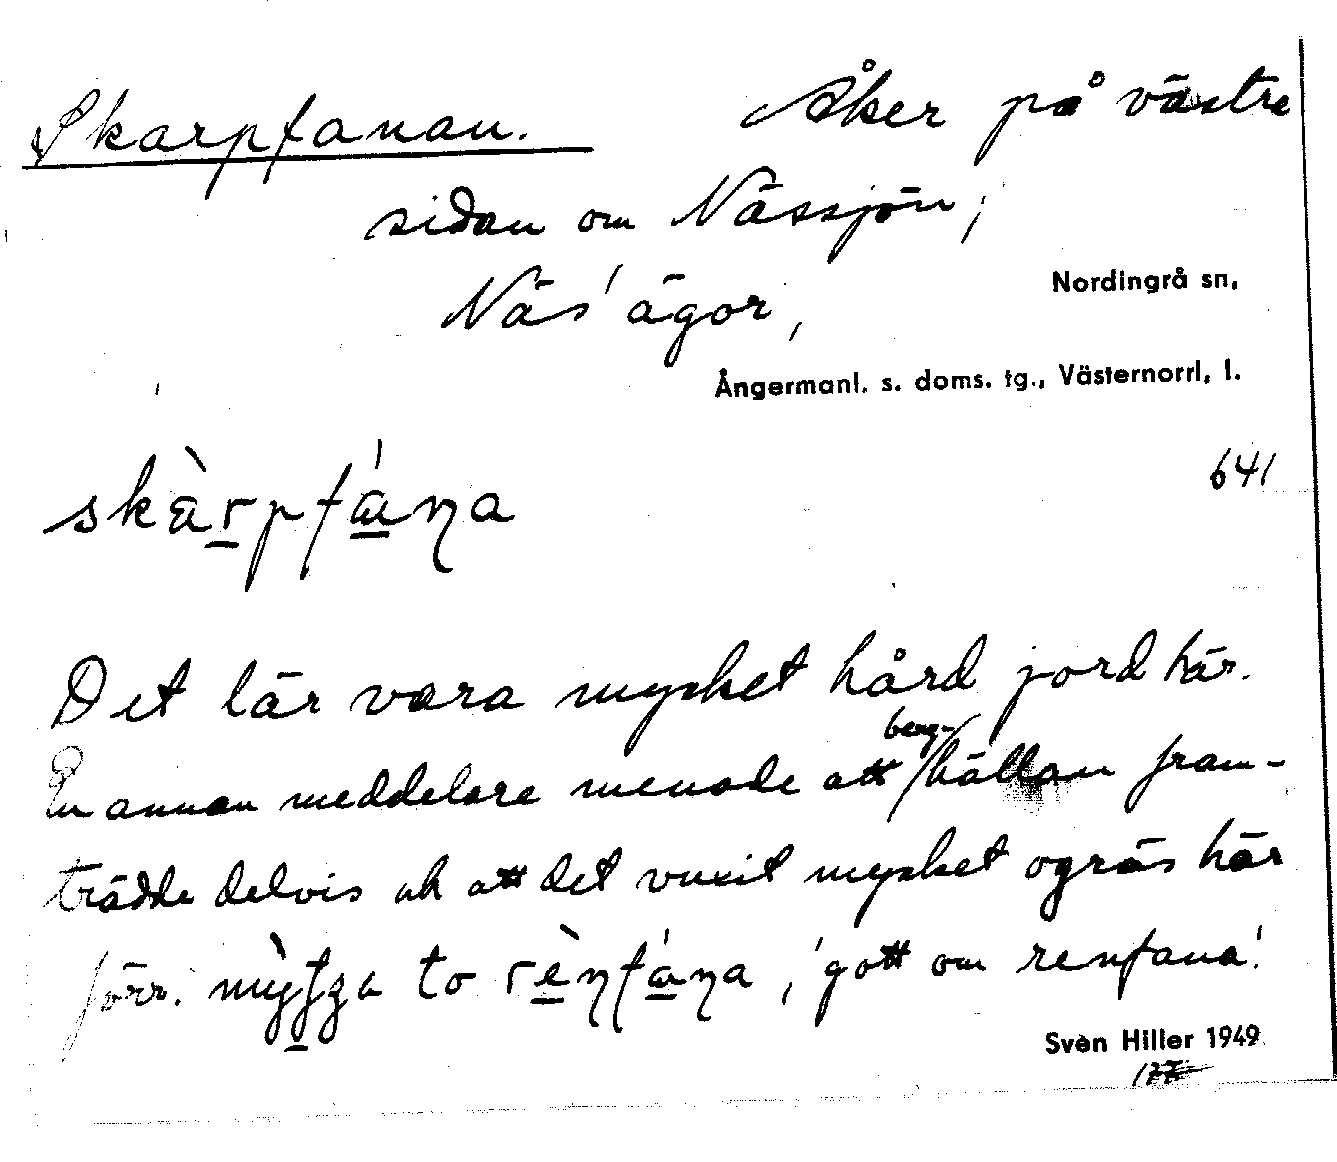 Skarpfanan. Åker på västre
sidan om Nässjön,
Näs' ägor,
Nordingrå sn,
Ångermanl. s. doms. tg., Västernorrl. l.
641
skàrpfána
Det lär vara mycket hård jord här.
En annan meddelare menade att berg-hällan fram-
trädde delvis och att det vuxit mycket ogräs här
förr. to rènfána, 'gott om renfana'.
Sven Hiller 1949
177